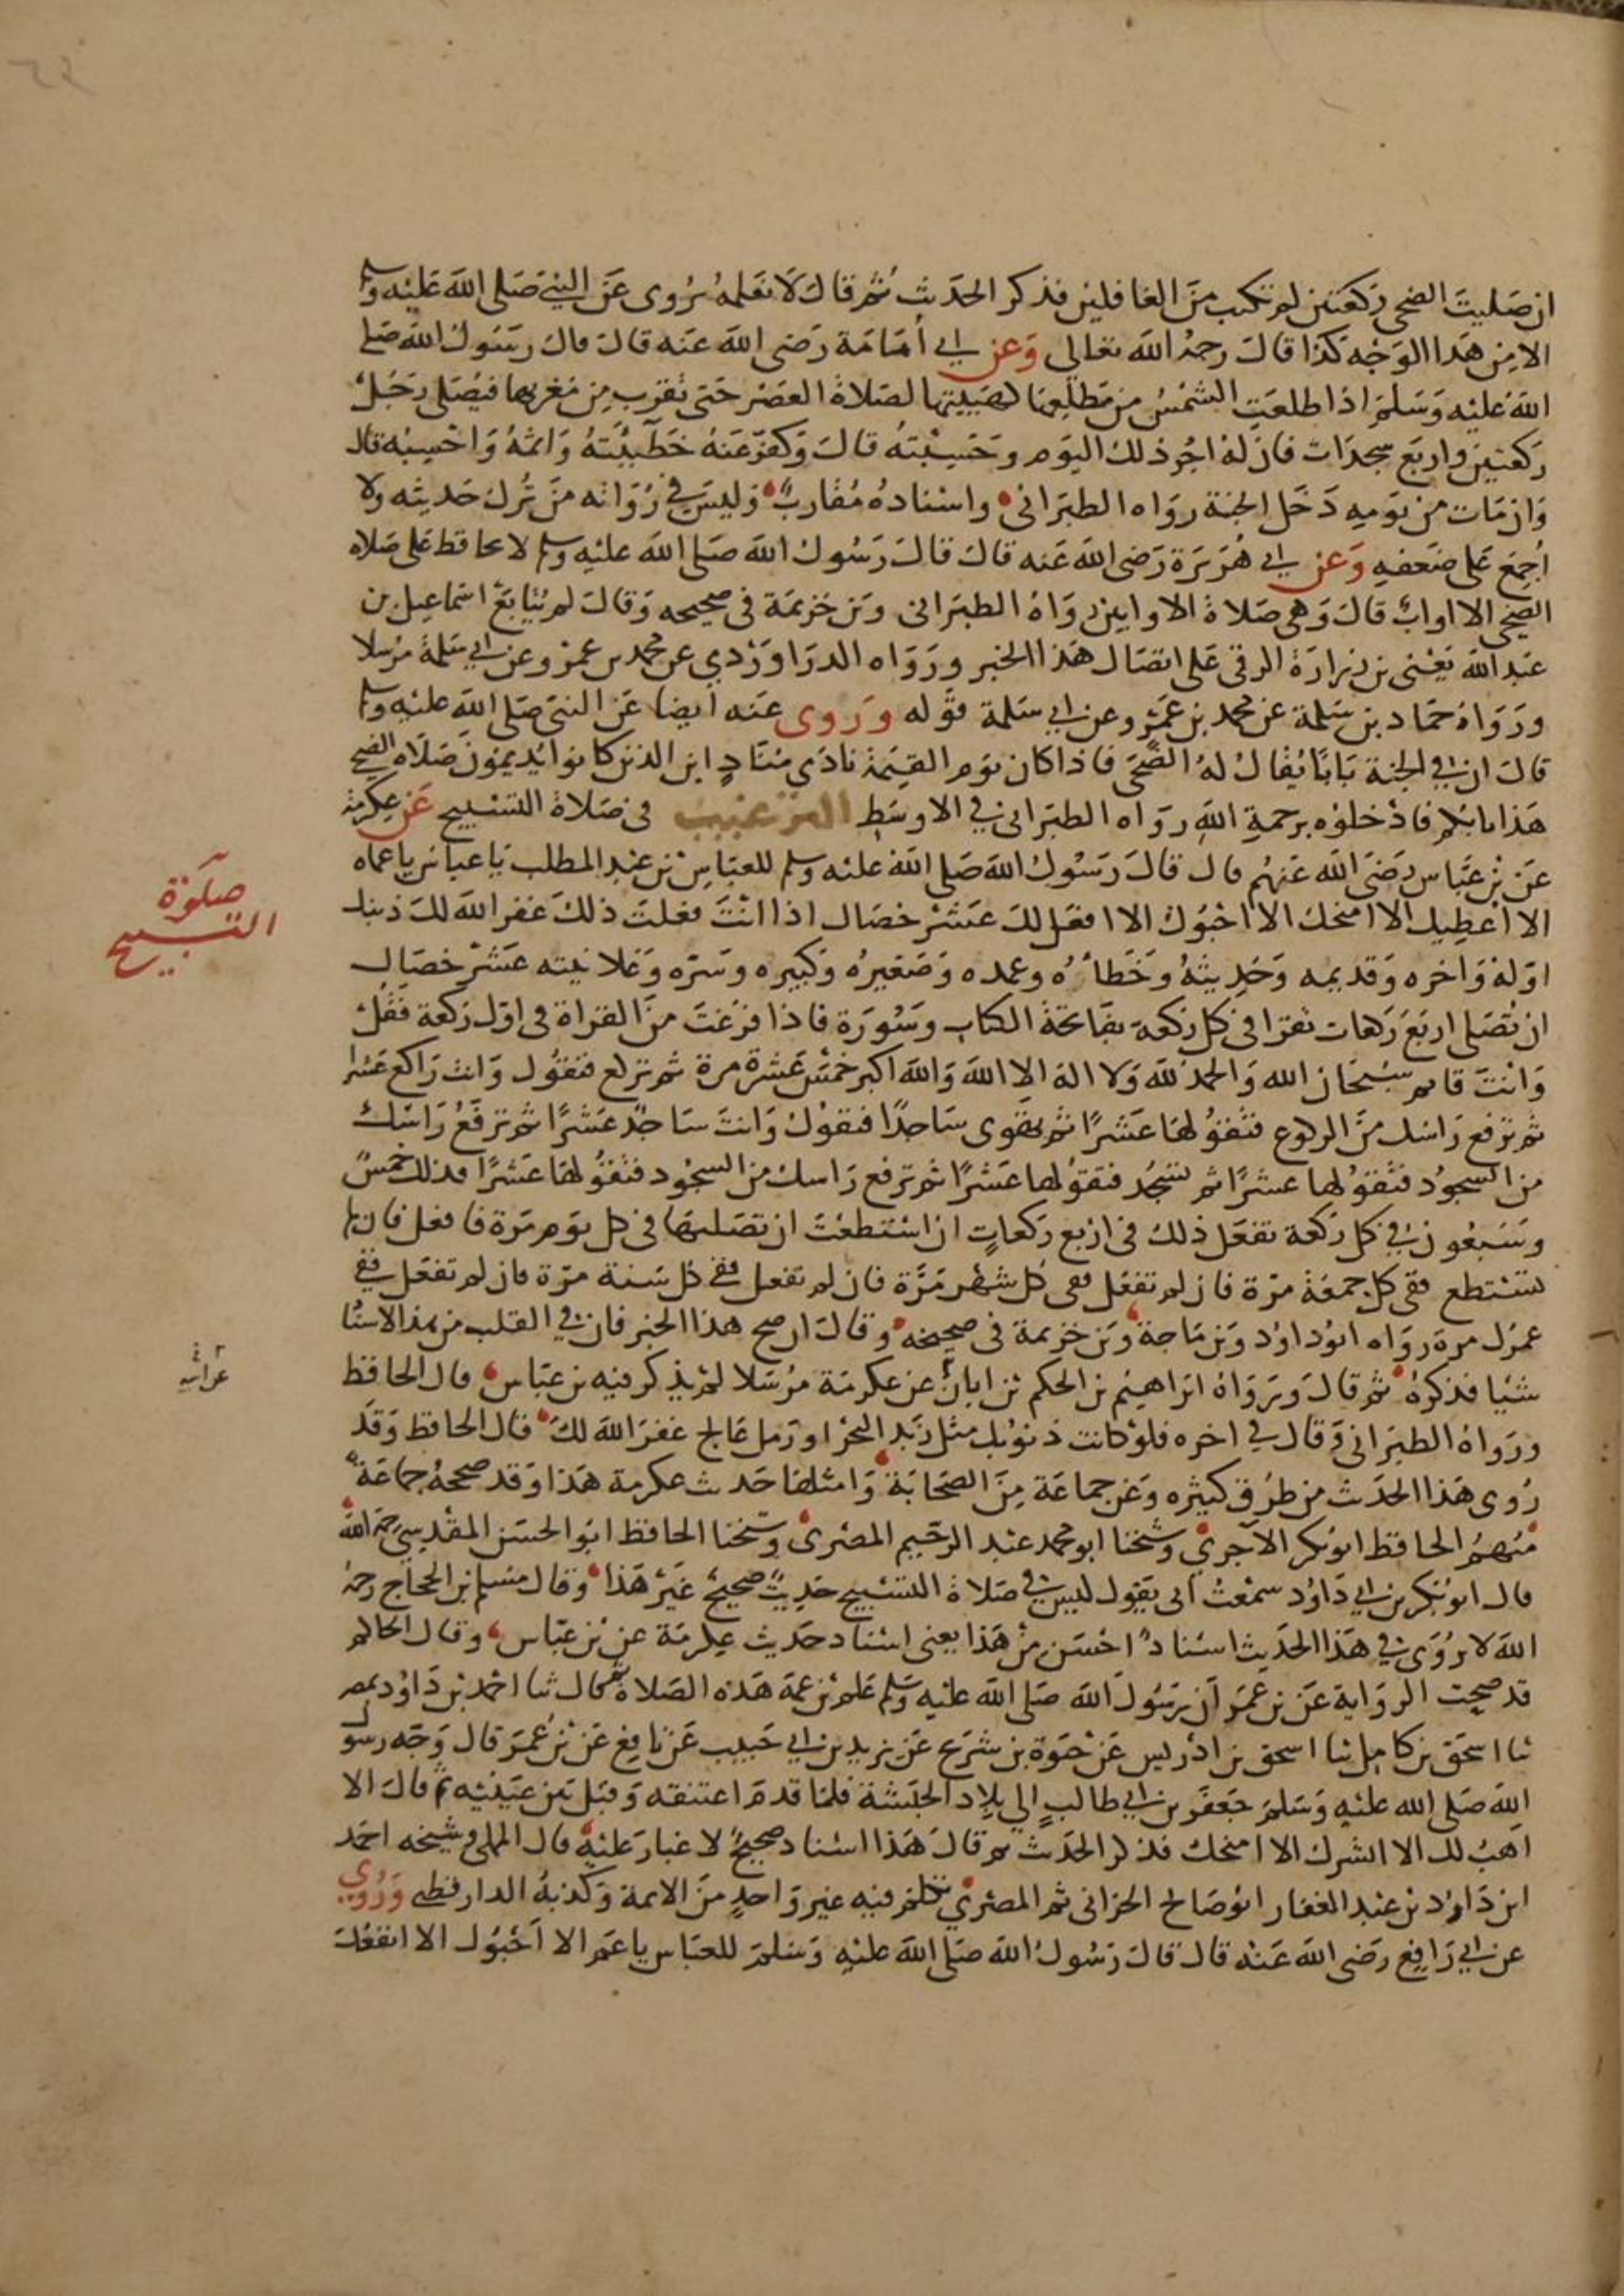 ان صليت الضحى ركعتين لم تكتب من الغافلين فذكر الحديث ثم قال لا نعلمه يروى عن النبي صلى الله عليه وسلم
الا من هذا الوجه كذا قال رحمه الله تعالى وعن ابي أمامة رضي الله عنه قال قال رسول الله صلى
الله عليه وسلم اذا طلعت الشمس من مطلعها كهيئتها لصلاة العصر حتى تقرب من مغربها فيصلي رجل
ركعتين واربع سجدات فان له اجر ذلك اليوم وحسبته قال وكفر عنه خطيئته واثمه واحسبه قال
وان مات من يومه دخل الجنة رواه الطبراني واسناده مقارب وليس في رواته من ترك حديثه ولا
أجمع على ضعفه وعن ابي هريرة رضي الله عنه قال قال رسول الله صلى الله عليه وسلم لا يحافظ على صلاه
الضحى الا اواب قال وهي صلاة الاوابين رواه الطبراني وبن خزيمة في صحيحه وقال لم يتابع اسماعيل بن
عبد الله يعني بن زرارة الرقي على اتصال هذا الخبر ورواه الدراوردي عن محمد بن عمرو عن ابي سلمة مرسلا
ورواه حماد بن سلمة عن محمد بن عمرو وعن ابي سلمة قوله وروى عنه ايضا عن النبي صلى الله عليه وسلم
قال ان في الجنة بابا يقال له الضحى فاذا كان يوم القيمة نادى مناد اين الذين كانوا يديمون صلاه الضحى
هذا بابكم فادخلوه برحمة الله رواه الطبراني في الاوسط الترغيب في صلاة التسبيح عن عكرمة
عن بن عباس رضي الله عنهم قال قال رسول الله صلى الله عليه وسلم للعباس بن عبد المطلب يا عباس يا عماه
الا أعطيك الا امنحك الا احبوك الا افعل لك عشر خصال اذا انت فعلت ذلك غفر الله لك ذنبك
اوله واخره وقديمه وحديثه وخطأه وعمده وصغيره وكبيره وسره وعلانيته عشر خصال
ان تصلي اربع ركعات تقرا في كل ركعة بفاتحة الكتاب وسورة فاذا فرغت من القراة في اول ركعة فقل
وانت قايم سبحان الله والحمد لله ولا اله الا الله والله اكبر خمس عشرة مرة ثم تركع فتقول وانت راكع عشرا
ثم ترفع راسك من الركوع فتقولها عشرًا ثم تهوى ساجدًا فتقول وانت ساجد عشرًا ثم ترفع راسك
من السجود فتقولها عشرًا ثم تسجد فتقولها عشرًا ثم ترفع راسك من السجود فتقولها عشرًا فذلك خمس
وسبعون في كل ركعة تفعل ذلك في اربع ركعات ان استطعت ان تصليها في كل يوم مرة فافعل فان لم
تستطع ففي كل جمعة مرة فان لم تفعل ففي كل شهر مرة فان لم تفعل ففي كل سنة مرة فان لم تفعل ففي
عمرك مرة رواه ابو داود وبن ماجة وبن خزيمة في صحيحه وقال ان صح هذا الخبر فان في القلب من هذا الاسنا
شيا فذكره ثم قال ورواه ابراهيم بن الحكم بن ابان عن عكرمة مرسلا لم يذكر فيه بن عباس قال الحافظ
ورواه الطبراني وقال في اخره فلو كانت ذنوبك مثل زبد البحر او رمل عالج غفر الله لك قال الحافظ وقد
روى هذا الحديث من طرق كثيره وعن جماعة من الصحابة وامثلها حديث عكرمة هذا وقد صححه جماعة
منهم الحافظ ابو بكر الآجري وشيخنا ابو محمد عبد الرحيم المصري وشيخنا الحافظ ابو الحسن المقدسي رحمه الله
قال ابو بكر بن ابي داود سمعت ابي يقول ليس في صلاة التسبيح حديث صحيح غير هذا وقال مسلم بن الحجاج رحمه
الله لا يروى في هذا الحديث اسناد احسن من هذا يعني اسناد حديث عكرمة عن بن عباس وقال الحاكم
قد صحت الرواية عن بن عمر أن رسول الله صلى الله عليه وسلم علم بن عمه هذه الصلاة ثم قال ثنا احمد بن داود بمصر
ثنا اسحق بن كامل ثنا اسحق بن ادريس عن حيوة بن شريح عن يزيد بن ابي حبيب عن نافع عن بن عمر قال وجه رسول
الله صلى الله عليه وسلم جعفر بن ابي طالب الى بلاد الحبشة فلما قدم اعتنقه وقبل بين عينيه ثم قال الا
اهب لك الا ابشرك الا امنحك فذكر الحديث ثم قال هذا اسناد صحيح لا غبار عليه قال المملي وشيخه احمد
ابن داود بن عبد الغفار ابو صالح الحراني ثم المصري تكلم فيه غير واحد من الائمة وكذبه الدارقطني وروي
عن ابي رافع رضي الله عنه قال قال رسول الله صلى الله عليه وسلم للعباس يا عم الا أحبوك الا انفعك
صلوة
التسبيح